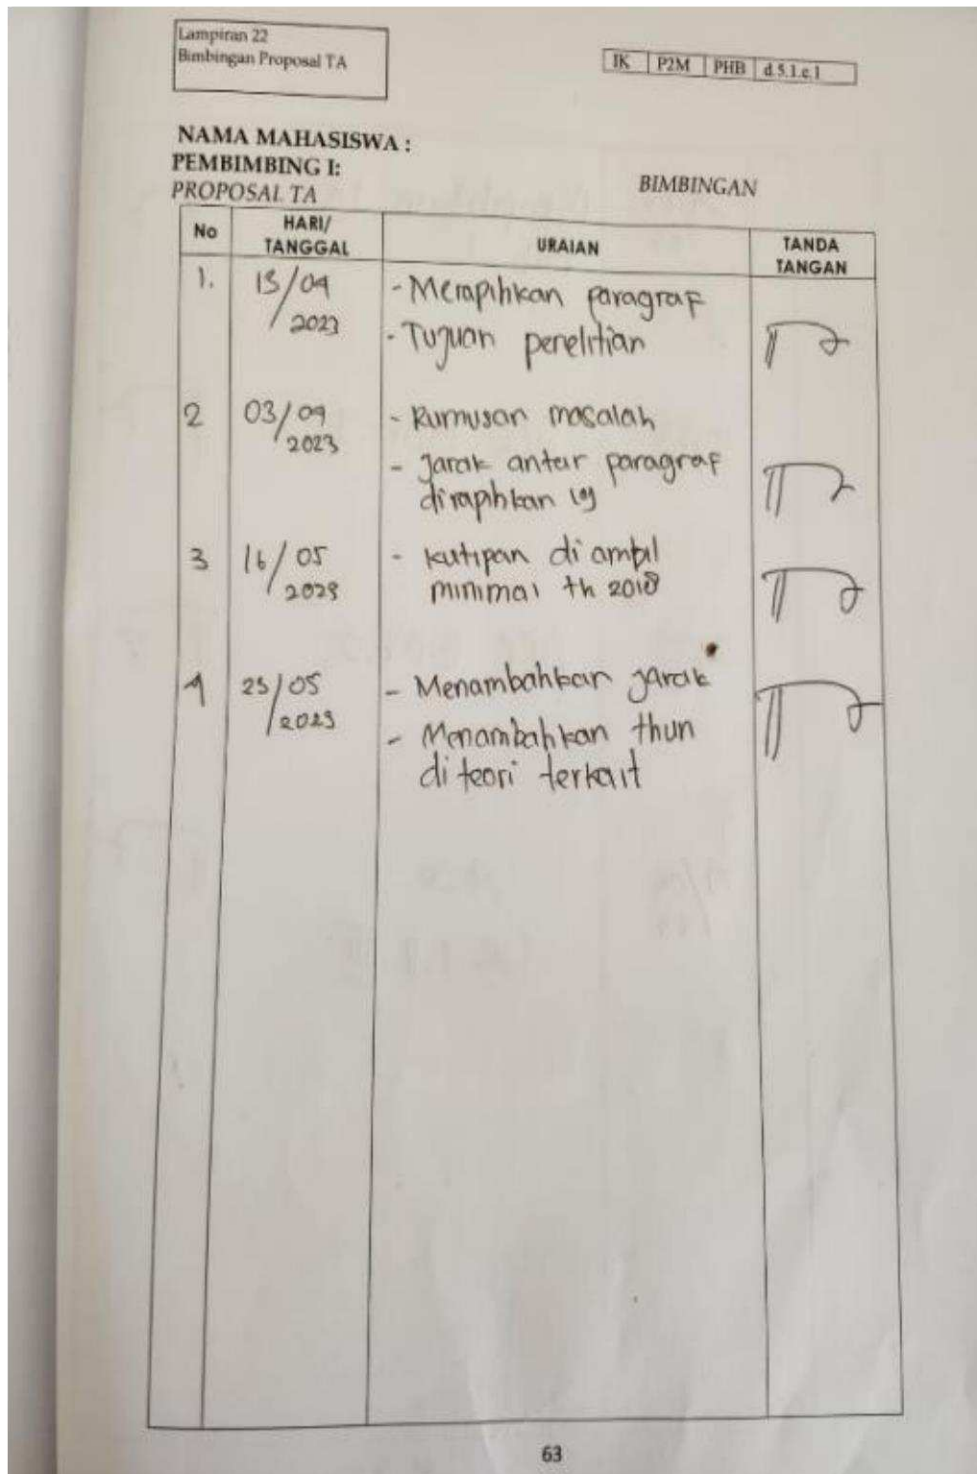 Lampiran 22
Bimbingan Proposal TA
IK P2M PHB d.5.1.c.1
NAMA MAHASISWA :
PEMBIMBING I:
PROPOSAL TA BIMBINGAN
No HARI/ TANGGAL URAIAN TANDA TANGAN
1. 13/04 - Merapihkan paragraf
2023 - Tujuan penelitian
2 03/09 - Rumusan masalah
2023
- Jarak antar paragraf
dirapihkan lg
3 16/05 - kutipan di ambil
2023 minimal th 2018
4 25/05 - Menambahkan jarak
2023 - Menambahkan thun
di teori terkait
63